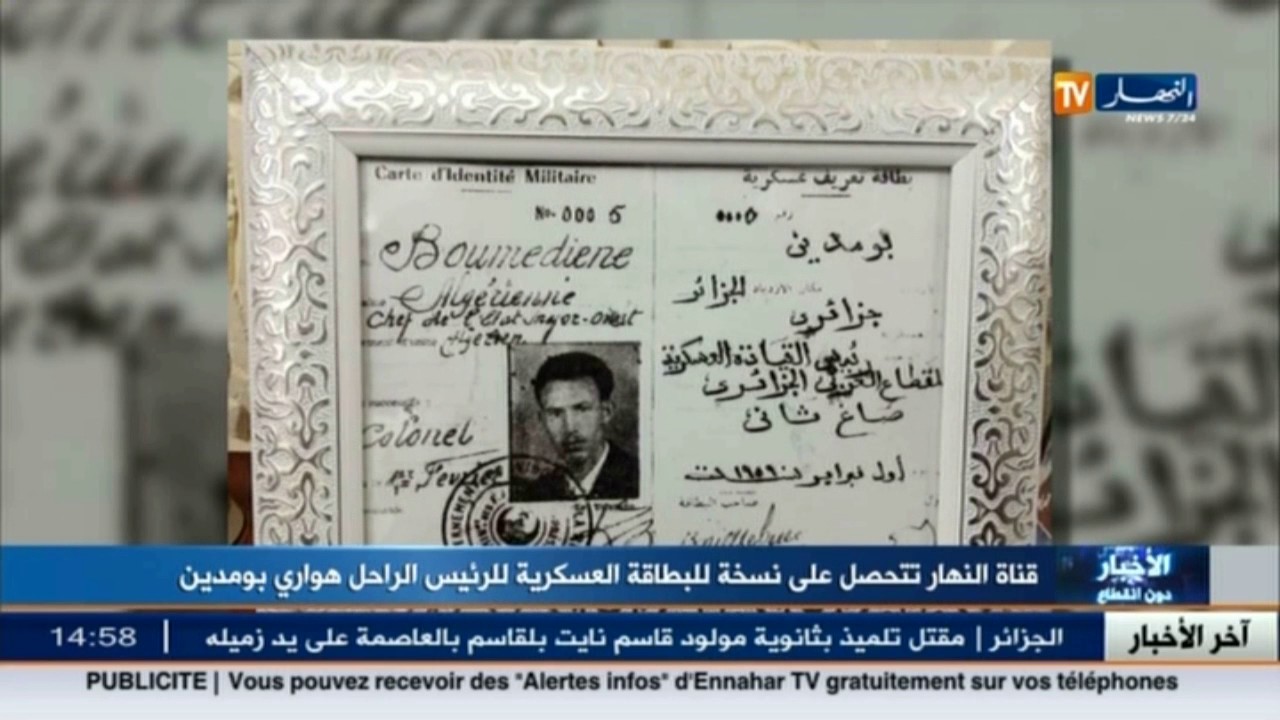 TV النهار
NEWS 7/24
Carte d'Identité Militaire
No. 000 5
Boumediene
Algérienne
Chef de l'Etat major-ouest
Algérien
Colonel
1er Février
بطاقة تعريف عسكرية
رقم 0005
بومدين
الجزائر
جزائري
القيادة العسكرية
للقطاع الغربي الجزائري
صاغ ثاني
أول فبراير
صاحب البطاقة
قناة النهار تتحصل على نسخة للبطاقة العسكرية للرئيس الراحل هواري بومدين
الأخبار
دون انقطاع
آخر الأخبار
الجزائر | مقتل تلميذ بثانوية مولود قاسم نايت بلقاسم بالعاصمة على يد زميله
14:58
PUBLICITE | Vous pouvez recevoir des "Alertes infos" d'Ennahar TV gratuitement sur vos téléphones